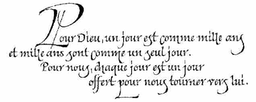 Pour Dieu, un jour est comme mille ans
et mille ans sont comme un seul jour.
Pour nous, chaque jour est un jour
offert pour nous tourner vers lui.